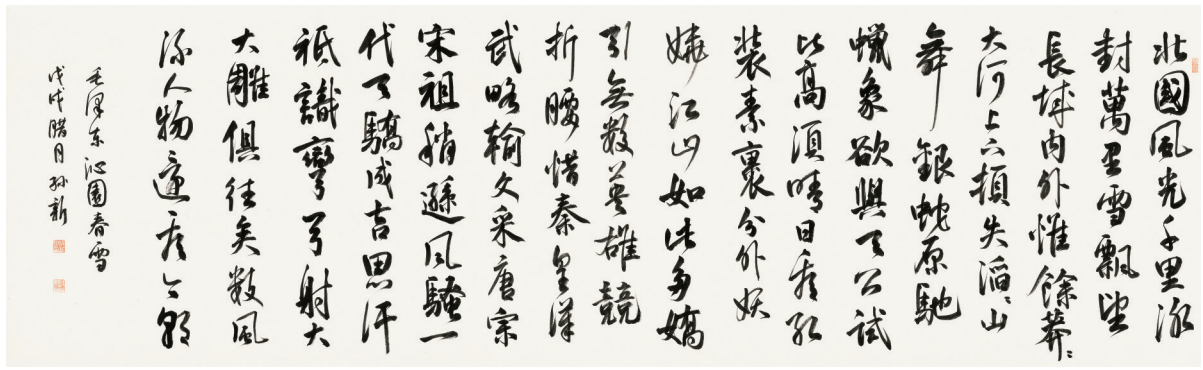 北國風光千里冰
封萬里雪飄望
長城内外惟餘莽〻
大河上下頓失滔〻山
舞銀蛇原馳
蠟象欲與天公試
比高須晴日看紅
裝素裹分外妖
嬈江山如此多嬌
引無數英雄競
折腰惜秦皇漢
武略輸文采唐宗
宋祖稍遜風騷一
代天驕成吉思汗
祇識彎弓射大
大雕俱往矣數風
流人物還看今朝
毛澤东沁園春雪
戊戌腊月孙新